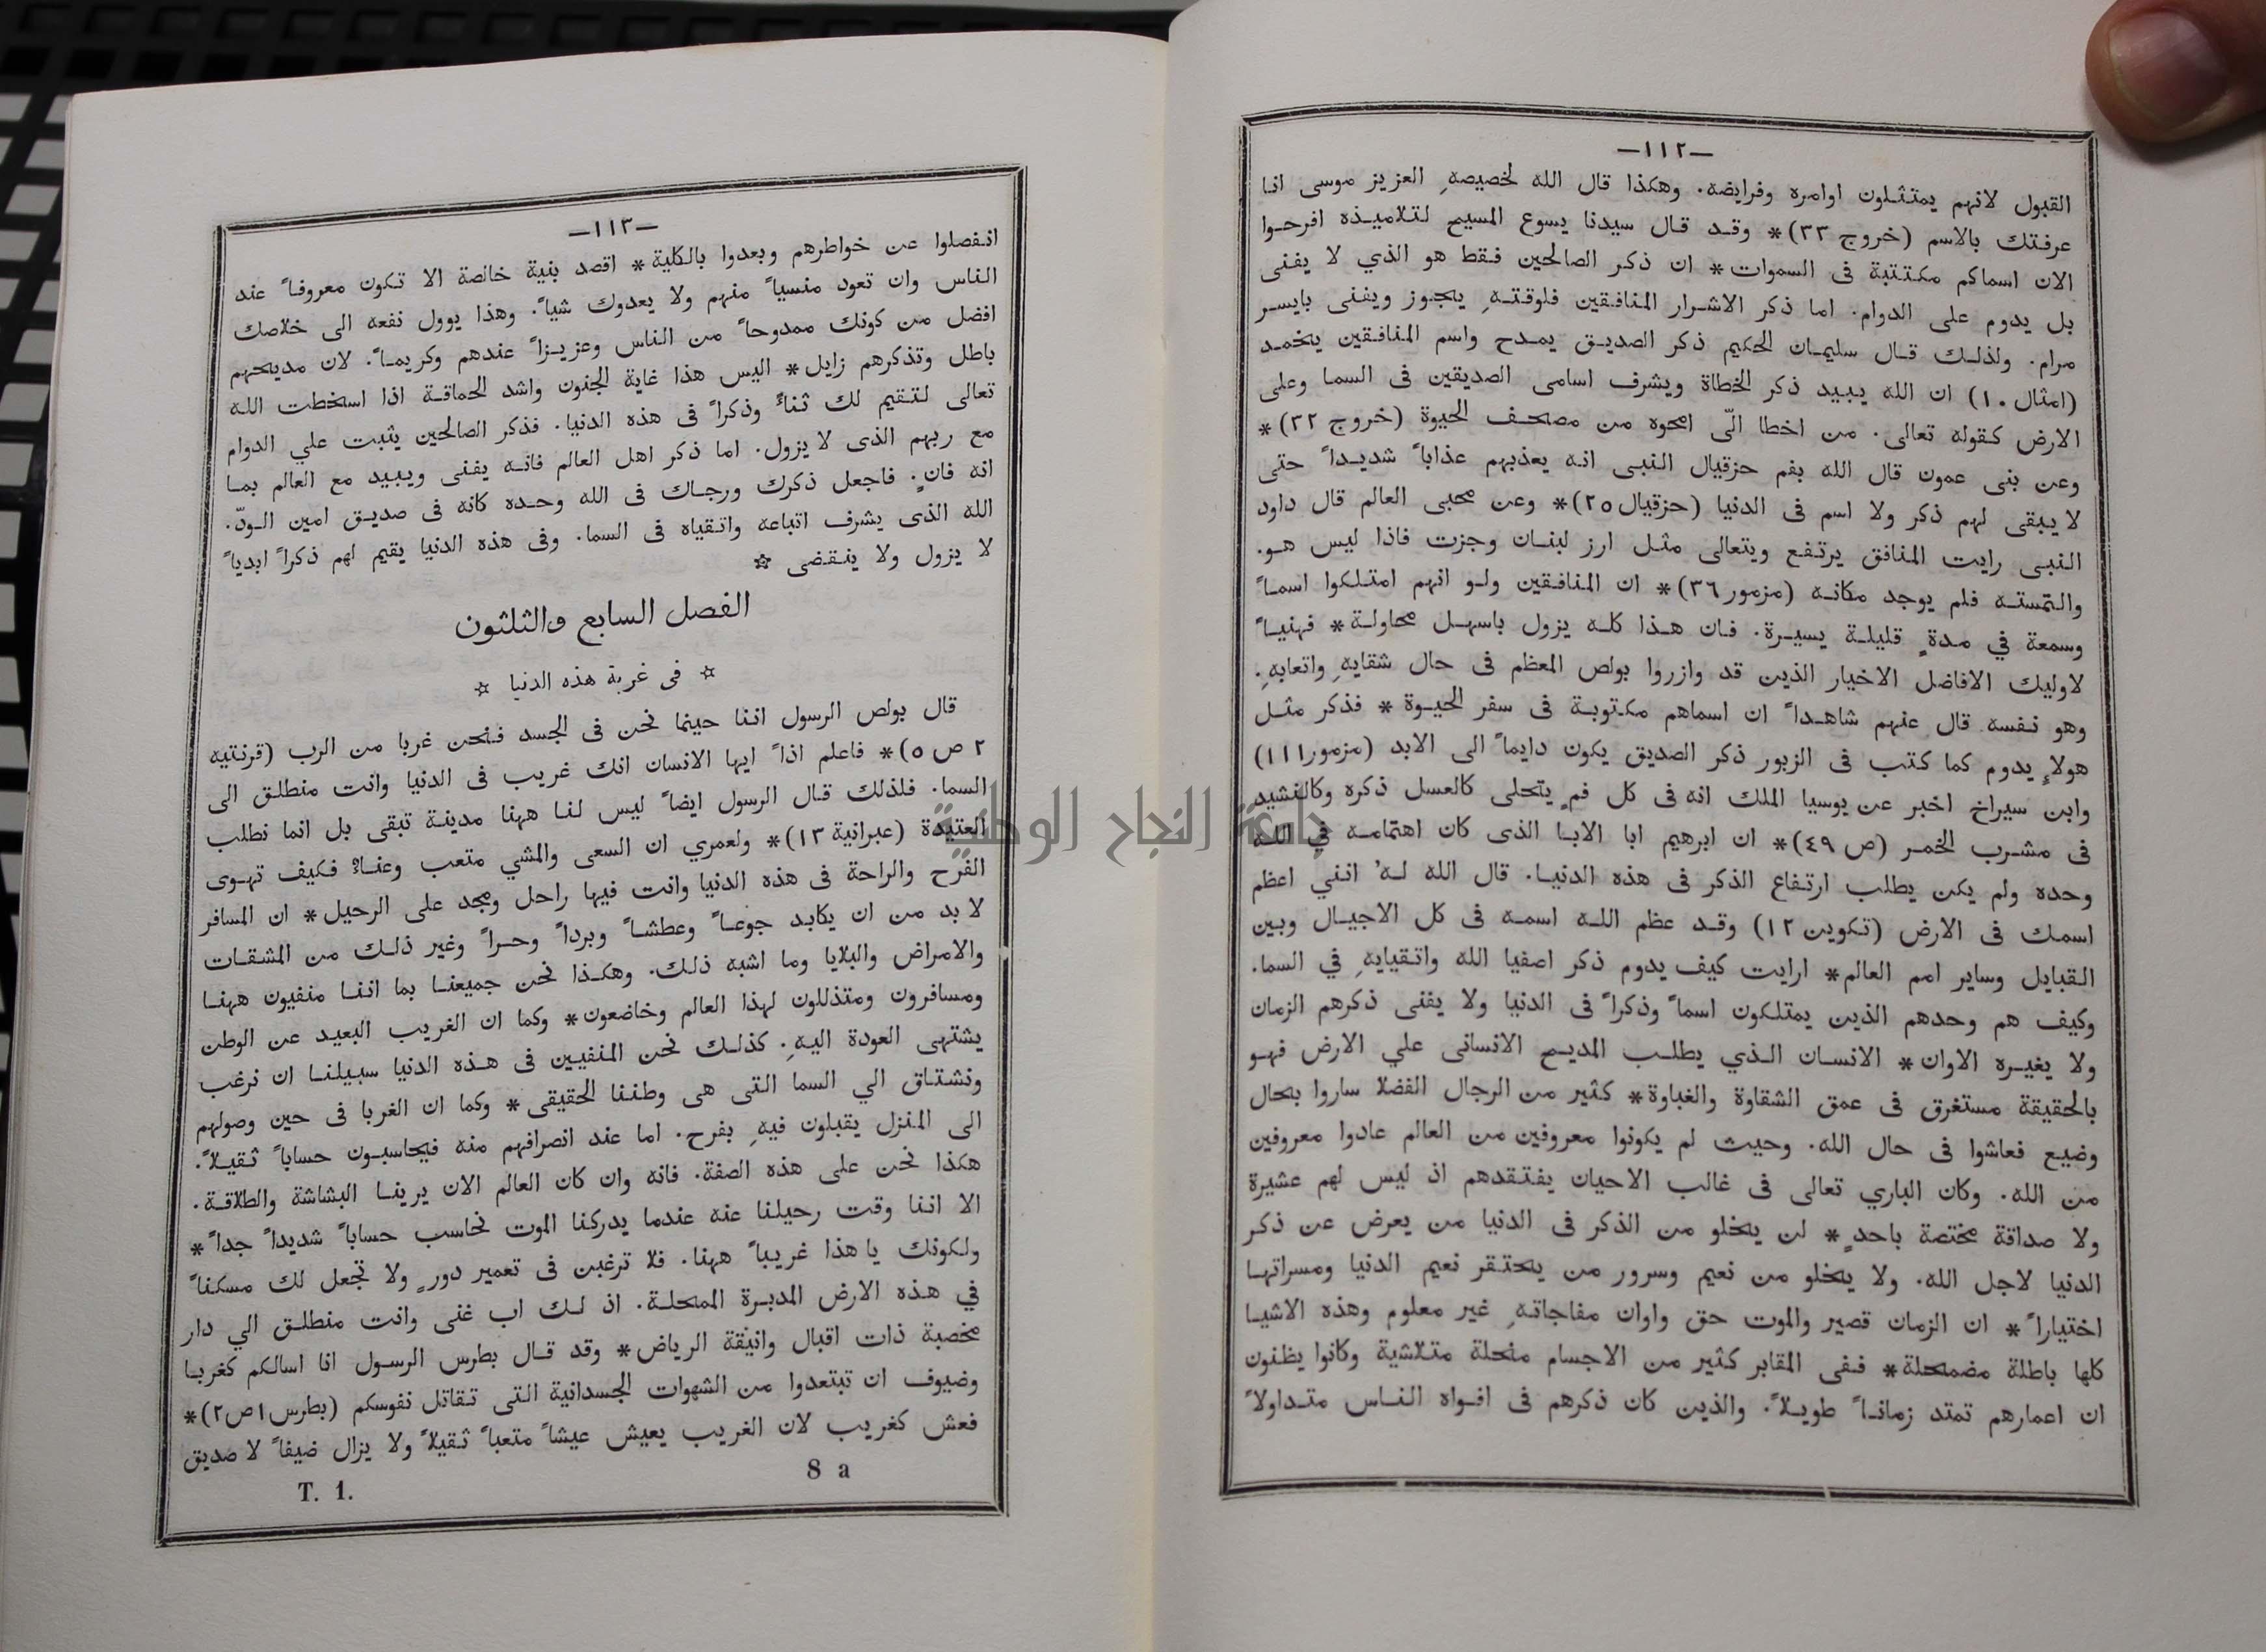 —١١٢—
القبول لانهم يمتثلون اوامره وفرايضه. وهكذا قال الله لخصيصهِ العزيز موسى انا
عرفتك بالاسم (خروج ٣٣)* وقد قال سيدنا يسوع المسيح لتلاميذه افرحوا
الان اسماكم مكتتبة فى السموات* ان ذكر الصالحين فقط هو الذي لا يفنى
بل يدوم على الدوام. اما ذكر الاشرار المنافقين فلوقتهِ يجوز ويفنى بايسر
مرام. ولذلك قال سليمان الحكيم ذكر الصديق يمدح واسم المنافقين يخمد
(امثال ١٠) ان الله يبيد ذكر الخطاة ويشرف اسامى الصديقين فى السما وعلى
الارض كقوله تعالى. من اخطا الّى امحوه من مصحف الحيوة (خروج ٣٢)*
وعن بنى عمون قال الله بفم حزقيال النبى انه يعذبهم عذاباً شديداً حتى
لا يبقى لهم ذكر ولا اسم فى الدنيا (حزقيال ٢٥)* وعن محبى العالم قال داود
النبى رايت المنافق يرتفع ويتعالى مثل ارز لبنان وجزت فاذا ليس هو.
والتمسته فلم يوجد مكانه (مزمور ٣٦)* ان المنافقين ولو انهم امتلكوا اسماً
وسمعة في مدةٍ قليلة يسيرة. فان هذا كله يزول باسهل محاولة* فهنياً
لاوليك الافاضل الاخيار الذين قد وازروا بولص المعظم فى حال شقايهِ واتعابهِ.
وهو نفسه قال عنهم شاهداً ان اسماهم مكتوبة فى سفر الحيوة* فذكر مثل
هولاءِ يدوم كما كتب فى الزبور ذكر الصديق يكون دايماً الى الابد (مزمور ١١١)
وابن سيراخ اخبر عن يوسيا الملك انه فى كل فمٍ يتحلى كالعسل ذكره وكالنشيد
فى مشرب الخمر (ص ٤٩)* ان ابرهيم ابا الابا الذى كان اهتمامه في الله
وحده ولم يكن يطلب ارتفاع الذكر فى هذه الدنيا. قال الله له' انني اعظم
اسمك فى الارض (تكوين ١٢) وقد عظم الله اسمه فى كل الاجيال وبين
القبايل وساير امم العالم* ارايت كيف يدوم ذكر اصفيا الله واتقيايهِ في السما.
وكيف هم وحدهم الذين يمتلكون اسماً وذكراً فى الدنيا ولا يفنى ذكرهم الزمان
ولا يغيره الاوان* الانسان الذي يطلب المديح الانسانى علي الارض فهو
بالحقيقة مستغرق فى عمق الشقاوة والغباوة* كثير من الرجال الفضلا ساروا بحال
وضيع فعاشوا فى حال الله. وحيث لم يكونوا معروفين من العالم عادوا معروفين
من الله. وكان الباري تعالى فى غالب الاحيان يفتقدهم اذ ليس لهم عشيرة
ولا صداقة مختصة باحدٍ* لن يخلو من الذكر فى الدنيا من يعرض عن ذكر
الدنيا لاجل الله. ولا يخلو من نعيم وسرور من يحتقر نعيم الدنيا ومسراتها
اختياراً* ان الزمان قصير والموت حق واوان مفاجاتهِ غير معلوم وهذه الاشيا
كلها باطلة مضمحلة* ففى المقابر كثير من الاجسام منحلة متلاشية وكانوا يظنون
ان اعمارهم تمتد زماناً طويلاً. والذين كان ذكرهم فى افواه الناس متداولاً
—١١٣—
انفصلوا عن خواطرهم وبعدوا بالكلية* اقصد بنية خالصة الا تكون معروفاً عند
الناس وان تعود منسياً منهم ولا يعدوك شياً. وهذا يوول نفعه الى خلاصك
افضل من كونك ممدوحاً من الناس وعزيزاً عندهم وكريماً. لان مديحهم
باطل وتذكرهم زايل* اليس هذا غاية الجنون واشد الحماقة اذا اسخطت الله
تعالى لتقيم لك ثناءً وذكراً فى هذه الدنيا. فذكر الصالحين يثبت علي الدوام
مع ربهم الذى لا يزول. اما ذكر اهل العالم فانه يفنى ويبيد مع العالم بما
انه فانٍ. فاجعل ذكرك ورجاك فى الله وحده كانه فى صديق امين الودّ.
الله الذى يشرف اتباعه واتقياه فى السما. وفى هذه الدنيا يقيم لهم ذكراً ابدياً
لا يزول ولا ينقضى ☆
الفصل السابع والثلثون
☆ فى غربة هذه الدنيا ☆
قال بولص الرسول اننا حينما نحن فى الجسد فنحن غربا من الرب (قرنتيه
٢ ص ٥)* فاعلم اذاً ايها الانسان انك غريب فى الدنيا وانت منطلق الى
السما. فلذلك قال الرسول ايضاً ليس لنا ههنا مدينة تبقى بل انما نطلب
العتيدة (عبرانية ١٣)* ولعمري ان السعى والمشي متعب وعناءٌ فكيف تهوى
الفرح والراحة فى هذه الدنيا وانت فيها راحل ومجد على الرحيل* ان المسافر
لا بد من ان يكابد جوعاً وعطشاً وبرداً وحراً وغير ذلك من المشقات
والامراض والبلايا وما اشبه ذلك. وهكذا نحن جميعنا بما اننا منفيون ههنا
ومسافرون ومتذللون لهذا العالم وخاضعون* وكما ان الغريب البعيد عن الوطن
يشتهى العودة اليهِ. كذلك نحن المنفيين فى هذه الدنيا سبيلنا ان نرغب
ونشتاق الي السما التى هى وطننا الحقيقى* وكما ان الغربا فى حين وصولهم
الى المنزل يقبلون فيهِ بفرح. اما عند انصرافهم منه فيحاسبون حساباً ثقيلاً.
هكذا نحن على هذه الصفة. فانه وان كان العالم الان يرينا البشاشة والطلاقة.
الا اننا وقت رحيلنا عنه عندما يدركنا الموت نحاسب حساباً شديداً جداً*
ولكونك يا هذا غريباً ههنا. فلا ترغبن فى تعمير دورٍ ولا تجعل لك مسكناً
في هذه الارض المدبرة الممحلة. اذ لك اب غنى وانت منطلق الي دار
مخصبة ذات اقبال وانيقة الرياض* وقد قال بطرس الرسول انا اسالكم كغربا
وضيوف ان تبتعدوا من الشهوات الجسدانية التى تقاتل نفوسكم (بطرس ١ ص ٢)*
فعش كغريب لان الغريب يعيش عيشاً متعباً ثقيلاً ولا يزال ضيفاً لا صديق
T. 1. 8 a
جامعة النجاح الوطنية